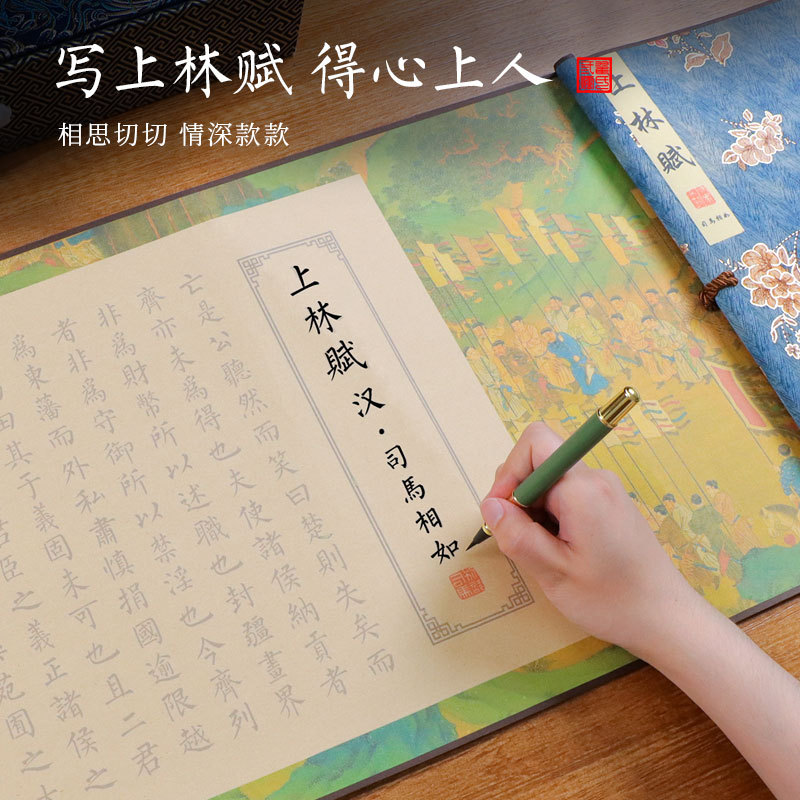 写上林赋 得心上人
相思切切 情深款款
上林賦
司馬相如
上林賦 汉·司馬相如
亡是公聽然而笑曰楚則失矣而
齊亦未為得也夫使諸侯納貢者
非為財幣所以述職也封疆畫界
者非為守御所以禁淫也今齊列
為東藩而外私肅慎捐國逾限越
田其于義固未可也且二君
君臣之義正諸侯之
苑囿之大